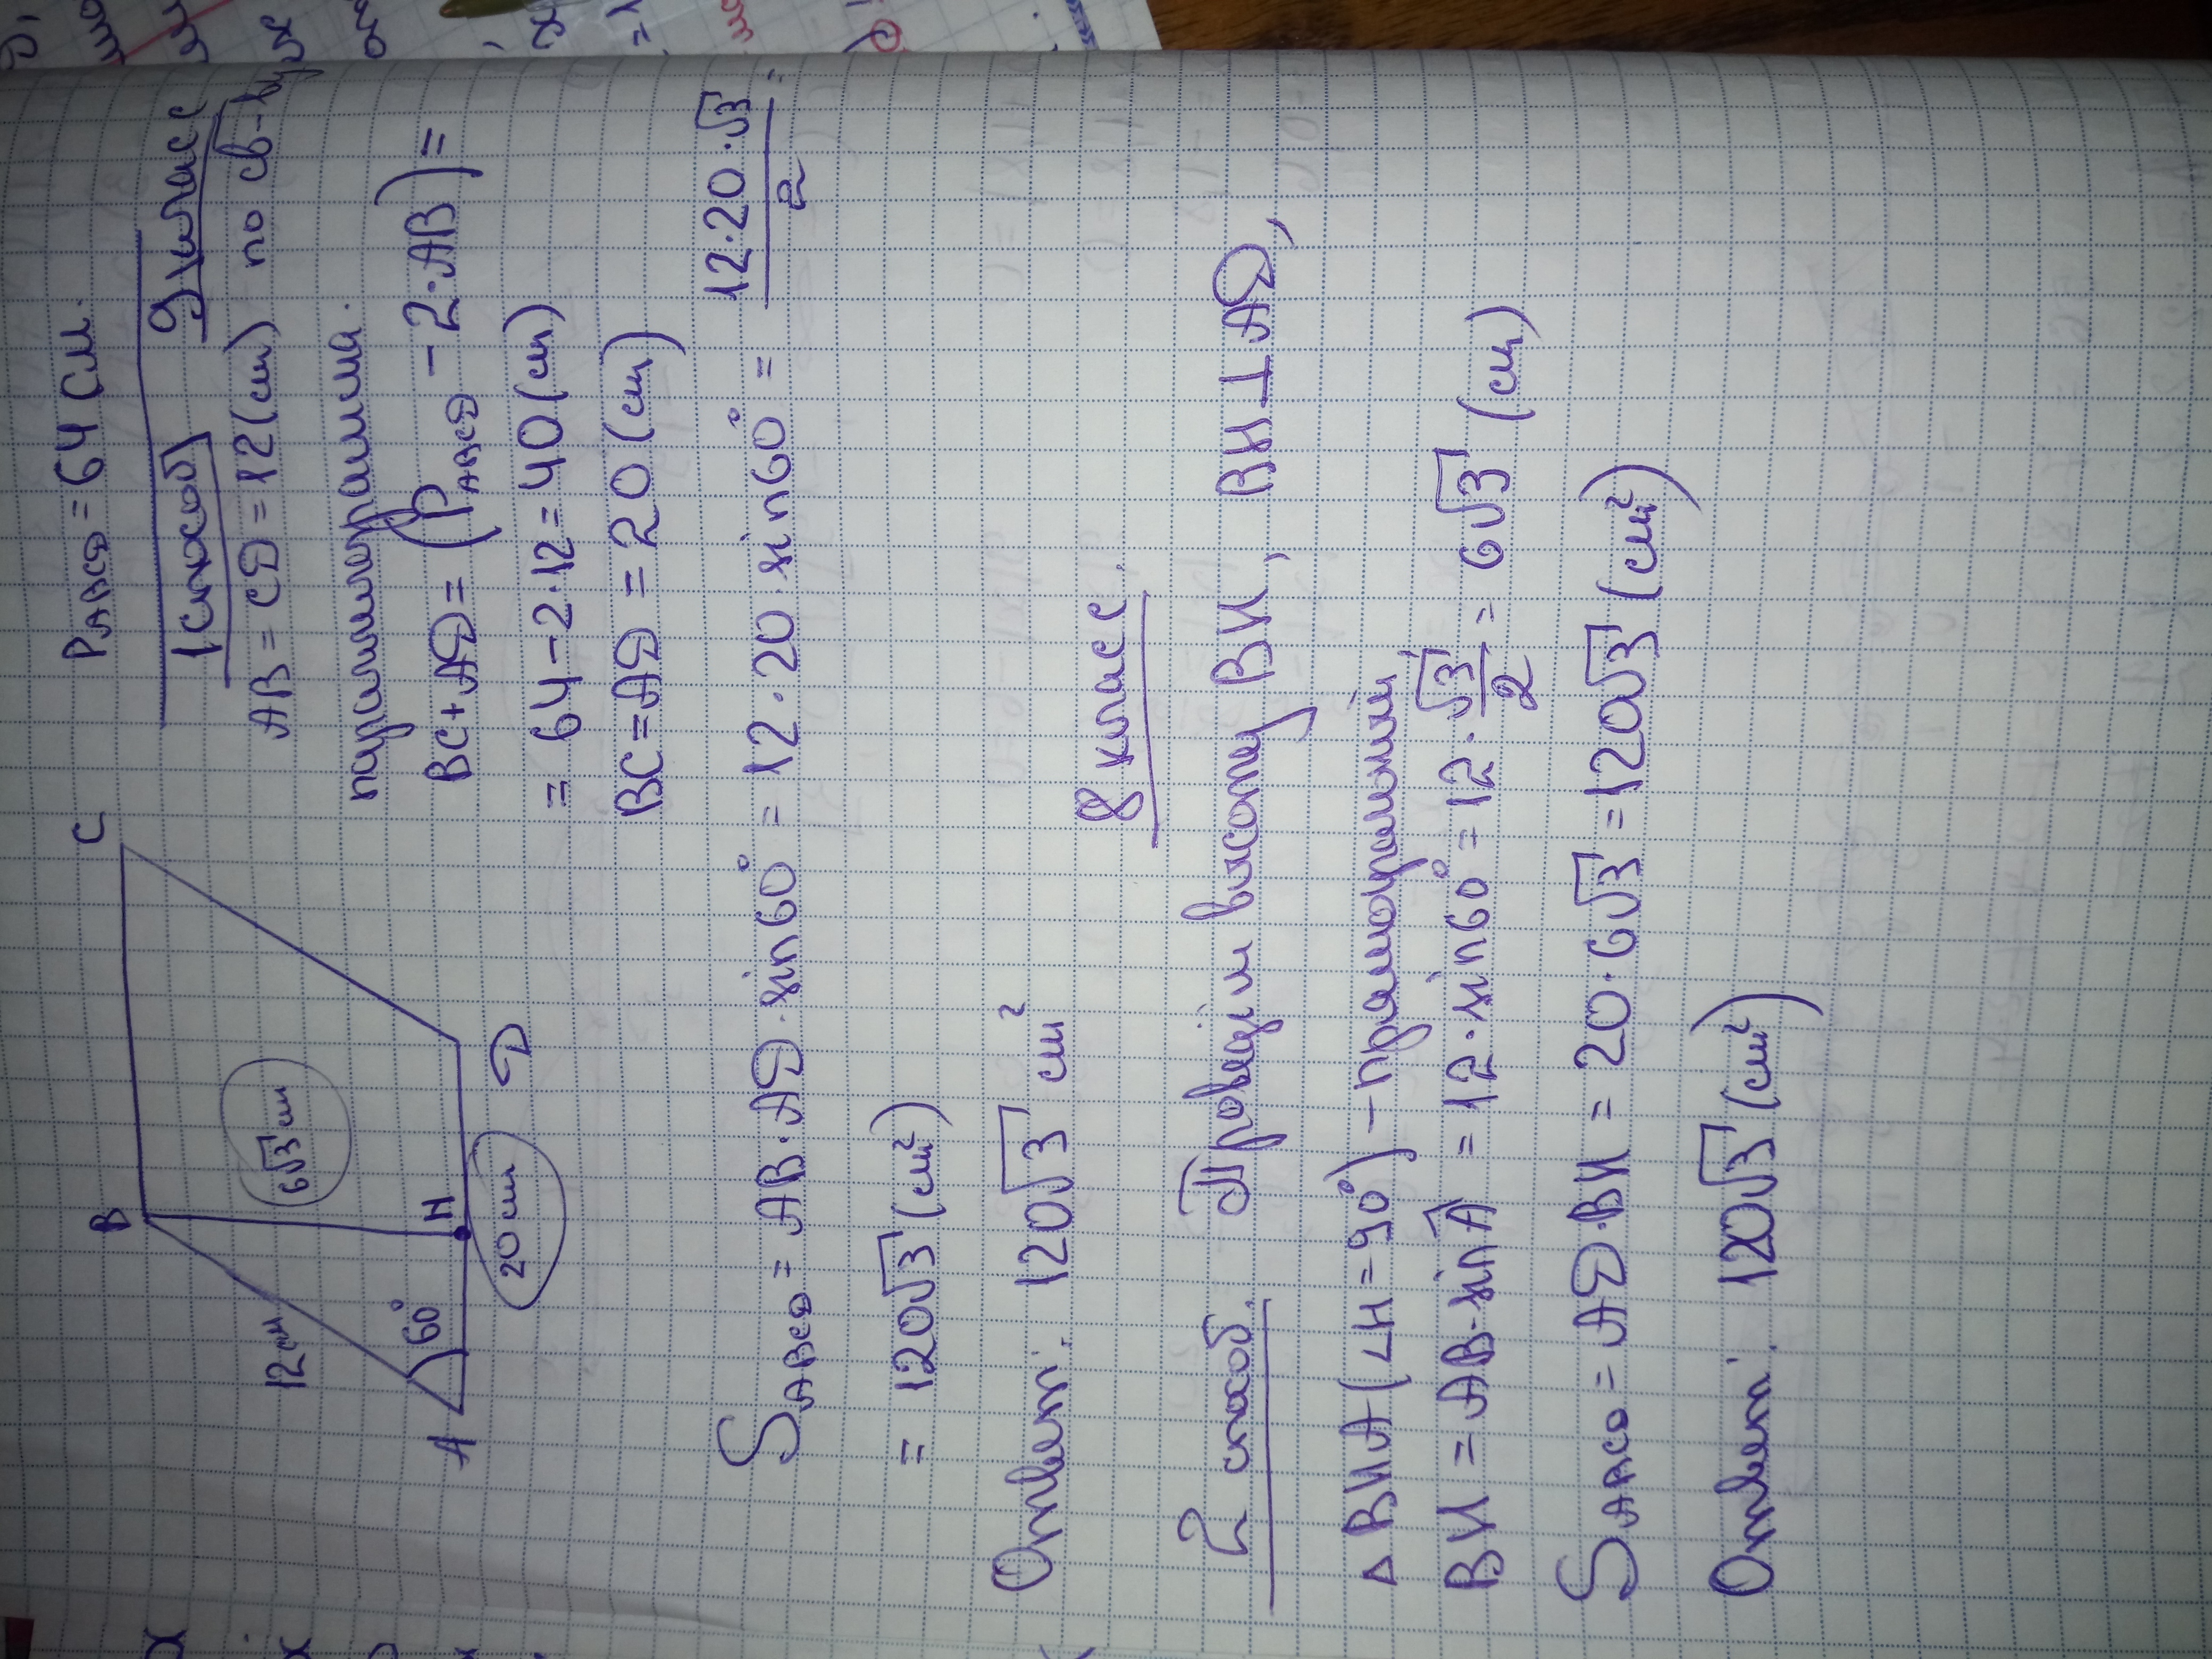 P ABCD = 64 см.
1 способ 9 класс
AB = CD = 12 (см) по св-ву
параллелограмма.
BC + AD = (P ABCD - 2·AB) =
= 64 - 2·12 = 40 (см)
BC = AD = 20 (см)
B
C
12 см
6√3 см
60°
A
H
D
20 см
S ABCD = AB·AD·sin60° = 12·20·sin60° = 12·20·√3/2 =
= 120√3 (см²)
Ответ: 120√3 см²
8 класс.
2 способ. Проведём высоту BH, BH⊥AD,
△BHA (∠H = 90°) - прямоугольный
BH = AB·sinA = 12·sin60° = 12·√3/2 = 6√3 (см)
S ABCD = AD·BH = 20·6√3 = 120√3 (см²)
Ответ: 120√3 (см²)